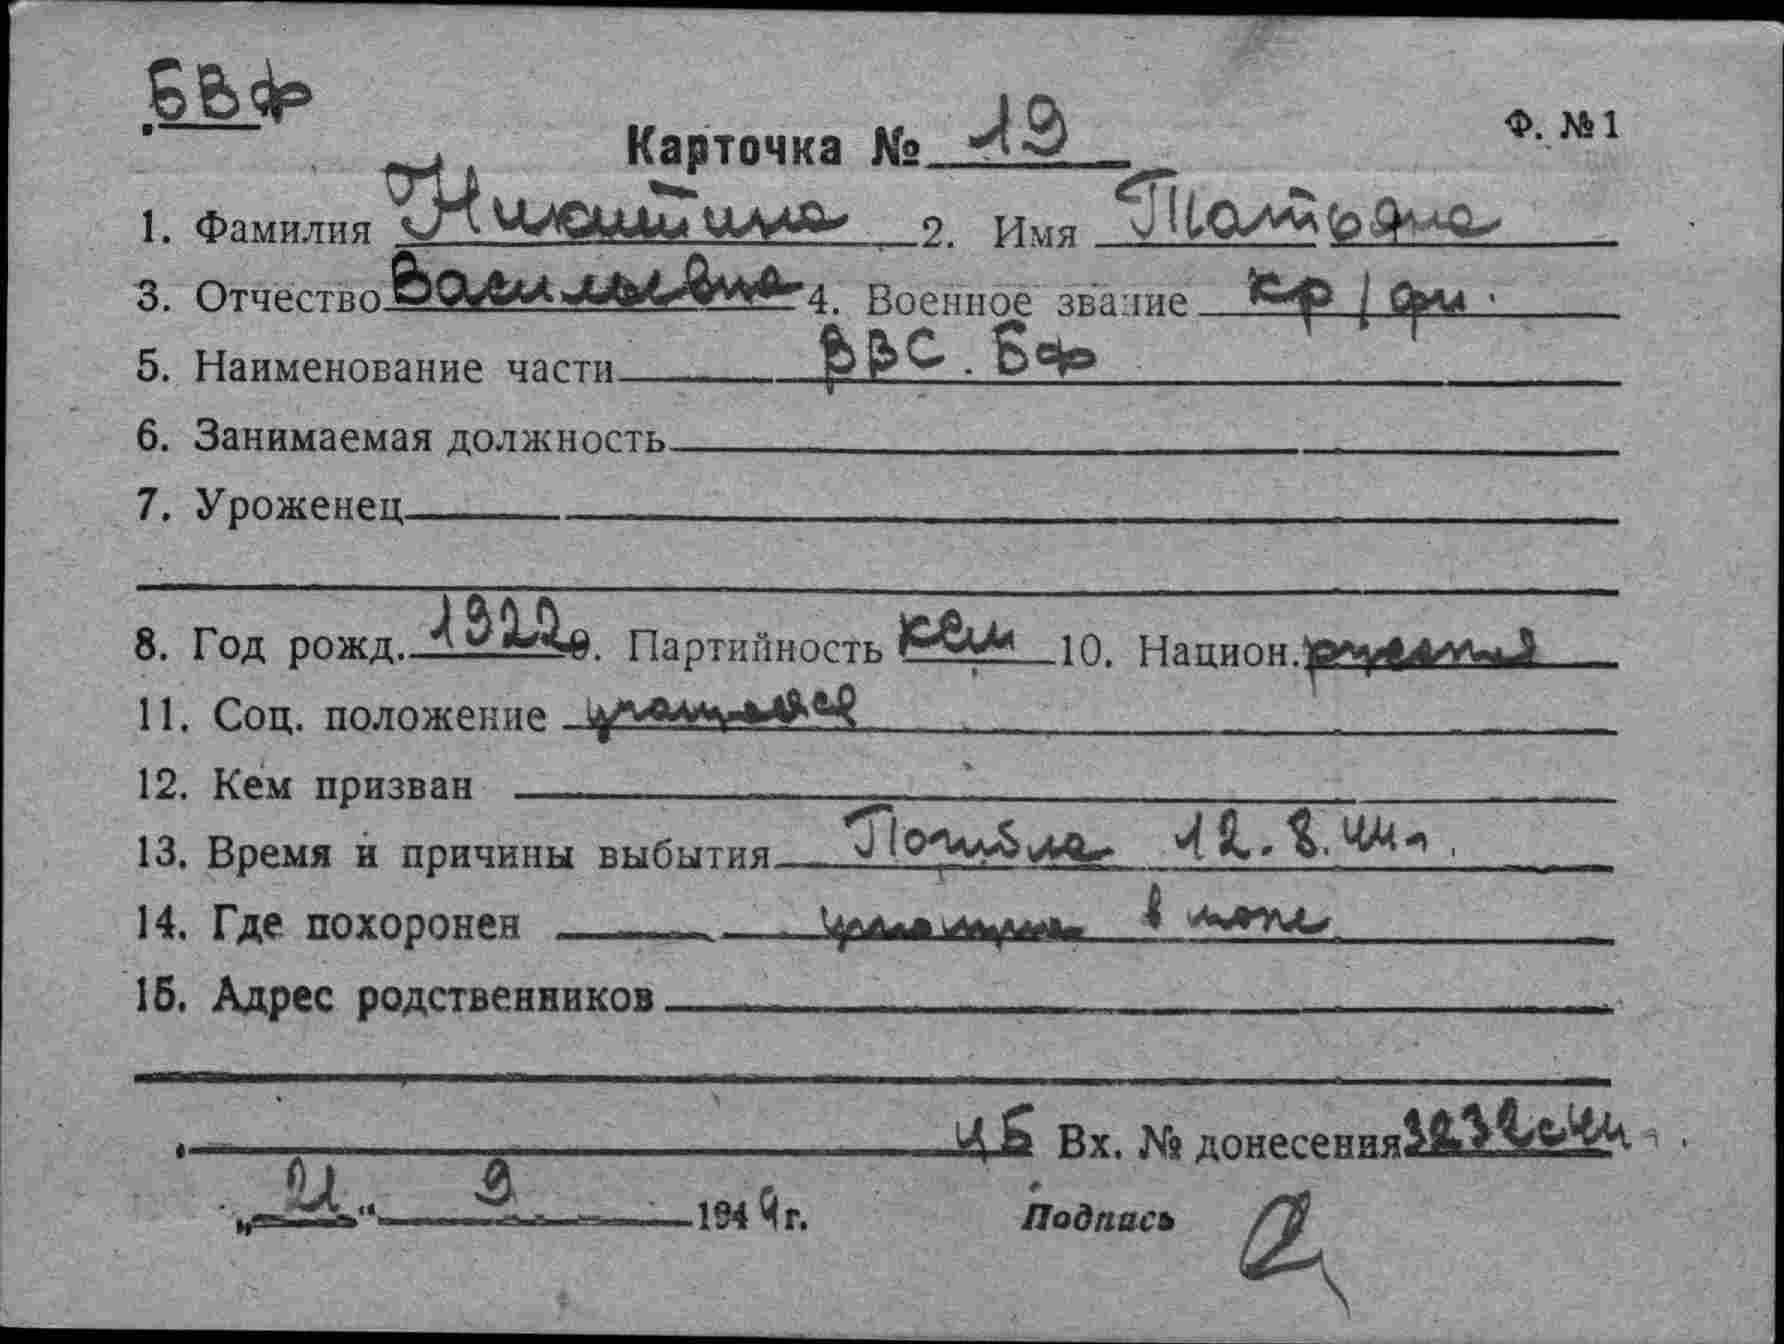 БВФ
Карточка № 19 Ф. №1
1. Фамилия Никитина 2. Имя Татьяна
3. Отчество Васильевна 4. Военное звание кр/фл.
5. Наименование части ВВС. БФ
6. Занимаемая должность
7. Уроженец
8. Год рожд. 1922 9. Партийность 10. Национ. русская
11. Соц. положение учащаяся
12. Кем призван
13. Время и причины выбытия Погибла 12.8.44г.
14. Где похоронен в море
15. Адрес родственников
ЦБ Вх. № донесения
„21" 9 1944г. Подпись